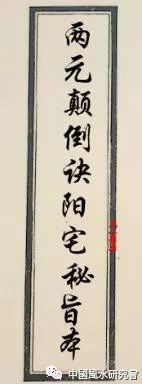 两元颠倒诀阳宅秘旨本
中國風水研究會